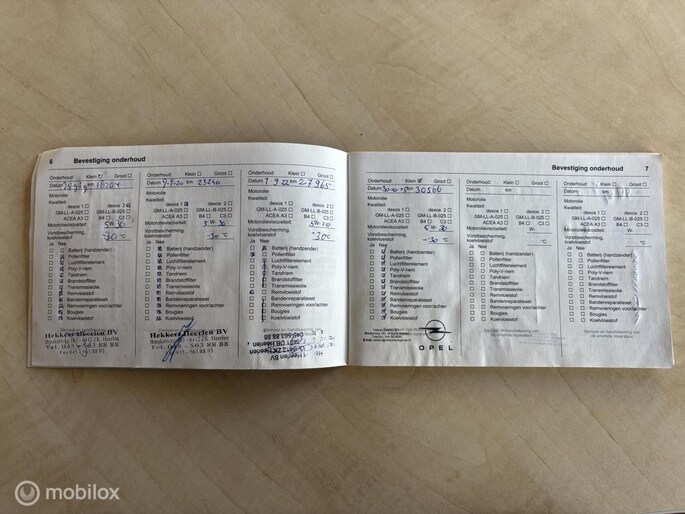 6 Bevestiging onderhoud
Onderhoud: Klein Groot
Datum km 18204
Motorolie
Kwaliteit:
dexos 1 dexos 2
GM-LL-A-025 GM-LL-B-025
ACEA A3 B4 C3
Motorolieviscositeit: 5w-30
Vorstbescherming,
koelvloeistof -30 °C
Ja Nee
Batterij (handzender)
Pollenfilter
Luchtfilterelement
Poly-V-riem
Tandriem
Brandstoffilter
Transmissieolie
Remvloeistof
Bandenreparatieset
Remvoeringen voor/achter
Bougies
Koelvloeistof
Hekkert Heerlen BV
Beyskensweg Heerlen
Tel. 045 - 563 88 88
Onderhoud: Klein Groot
Datum 9-9-20 km 23240
Motorolie
Kwaliteit:
dexos 1 dexos 2
GM-LL-A-025 GM-LL-B-025
ACEA A3 B4 C3
Motorolieviscositeit: 5w 30
Vorstbescherming,
koelvloeistof -30 °C
Ja Nee
Batterij (handzender)
Pollenfilter
Luchtfilterelement
Poly-V-riem
Tandriem
Brandstoffilter
Transmissieolie
Remvloeistof
Bandenreparatieset
Remvoeringen voor/achter
Bougies
Koelvloeistof
Hekkert Heerlen BV
Heerlen
Tel. 045 - 563 88 88
Onderhoud: Klein Groot
Datum 7-9-22 km 27965
Motorolie
Kwaliteit:
dexos 1 dexos 2
GM-LL-A-025 GM-LL-B-025
ACEA A3 B4 C3
Motorolieviscositeit: 5w-30
Vorstbescherming,
koelvloeistof -30 °C
Ja Nee
Batterij (handzender)
Pollenfilter
Luchtfilterelement
Poly-V-riem
Tandriem
Brandstoffilter
Transmissieolie
Remvloeistof
Bandenreparatieset
Remvoeringen voor/achter
Bougies
Koelvloeistof
Heerlen BV
Bevestiging onderhoud 7
Onderhoud: Klein Groot
Datum km 30566
Motorolie
Kwaliteit:
dexos 1 dexos 2
GM-LL-A-025 GM-LL-B-025
ACEA A3 B4 C3
Motorolieviscositeit: 5w-30
Vorstbescherming,
koelvloeistof -30 °C
Ja Nee
Batterij (handzender)
Pollenfilter
Luchtfilterelement
Poly-V-riem
Tandriem
Brandstoffilter
Transmissieolie
Remvloeistof
Bandenreparatieset
Remvoeringen voor/achter
Bougies
Koelvloeistof
OPEL
Onderhoud: Klein Groot
Datum km
Motorolie
Kwaliteit:
dexos 1 dexos 2
GM-LL-A-025 GM-LL-B-025
ACEA A3 B4 C3
Motorolieviscositeit: W-
Vorstbescherming,
koelvloeistof °C
Ja Nee
Batterij (handzender)
Pollenfilter
Luchtfilterelement
Poly-V-riem
Tandriem
Brandstoffilter
Transmissieolie
Remvloeistof
Bandenreparatieset
Remvoeringen voor/achter
Bougies
Koelvloeistof
Onderhoud: Klein Groot
Datum km
Motorolie
Kwaliteit:
dexos 1 dexos 2
GM-LL-A-025 GM-LL-B-025
ACEA A3 B4 C3
Motorolieviscositeit: W-
Vorstbescherming,
koelvloeistof °C
Ja Nee
Batterij (handzender)
Pollenfilter
Luchtfilterelement
Poly-V-riem
Tandriem
Brandstoffilter
Transmissieolie
Remvloeistof
Bandenreparatieset
Remvoeringen voor/achter
Bougies
Koelvloeistof
mobilox